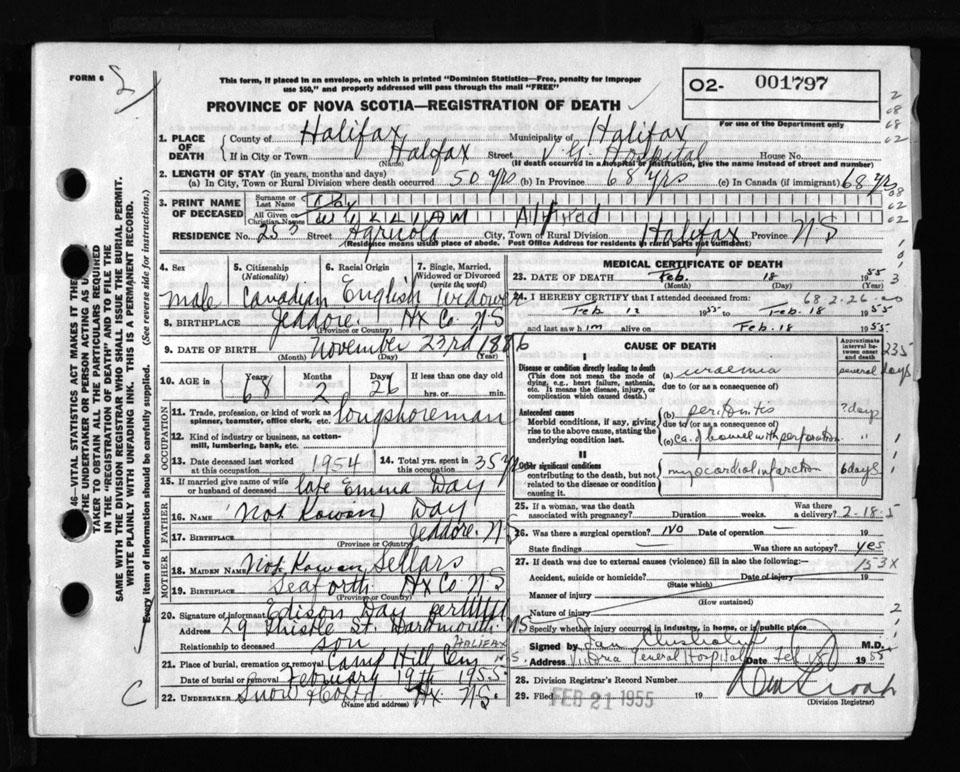 FORM 6
This form, if placed in an envelope, on which is printed "Dominion Statistics—Free, penalty for improper
use $50," and properly addressed will pass through the mail "FREE"
O2- 001797
For use of the Department only
PROVINCE OF NOVA SCOTIA—REGISTRATION OF DEATH
1. PLACE OF DEATH
County of Halifax Municipality of Halifax
If in City or Town Halifax Street V. G. Hospital House No.
(Name) (If death occurred in a hospital or institution, give the name instead of street and number)
2. LENGTH OF STAY (in years, months and days)
(a) In City, Town or Rural Division where death occurred 50 yrs (b) In Province 68 yrs (c) in Canada (if immigrant) 68 yrs
3. PRINT NAME OF DECEASED
Surname or Last Name Day
All Given or Christian Names WILLIAM Alfred
RESIDENCE No. 253 Street Agricola City, Town or Rural Division Halifax Province N S
(Residence means usual place of abode. Post Office Address for residents in rural parts not sufficient)
46—VITAL STATISTICS ACT MAKES IT THE
THE UNDERTAKER OR PERSON ACTING AS U
TAKER TO OBTAIN ALL THE PARTICULARS REQUIRED
IN THE "REGISTRATION OF DEATH" AND TO FILE THE
SAME WITH THE DIVISION REGISTRAR WHO SHALL ISSUE THE BURIAL PERMIT.
WRITE PLAINLY WITH UNFADING INK. THIS IS A PERMANENT RECORD.
Every item of information should be carefully supplied. (See reverse side for instructions.)
4. Sex
male
5. Citizenship
(Nationality)
Canadian
6. Racial Origin
English
7. Single, Married,
Widowed or Divorced
(write the word)
Widower
8. BIRTHPLACE Jeddore Hx Co. N S
(Province or Country)
9. DATE OF BIRTH November 23rd 1886
(Month) (Day) (Year)
10. AGE in
Years Months Days If less than one day old
68 2 26 hrs. or min.
OCCUPATION
11. Trade, profession, or kind of work as
spinner, teamster, office clerk, etc. longshoreman
12. Kind of industry or business, as cotton-
mill, lumbering, bank, etc.
13. Date deceased last worked
at this occupation 1954
14. Total yrs. spent in
this occupation 35 yrs
15. If married give name of wife
or husband of deceased late Emma Day
FATHER
16. NAME Not Known Day
17. BIRTHPLACE Jeddore N S
(Province or Country)
MOTHER
18. MAIDEN NAME Not Known Sellars
19. BIRTHPLACE Seaforth Hx Co N S
(Province or Country)
20. Signature of informant Edison Day per
Address 29 Thistle St. Dartmouth N S
Relationship to deceased son
21. Place of burial, cremation or removal Camp Hill Cem HALIFAX N S.
Date of burial or removal February 19th 1955
22. UNDERTAKER Snow & Co Ltd Hx N S.
(Name and address)
C
MEDICAL CERTIFICATE OF DEATH
23. DATE OF DEATH Feb. 18 1955
(Month) (Day)
24. I HEREBY CERTIFY that I attended deceased from:
68-2-26
Feb 12 1955 to Feb. 18 1955
and last saw him alive on Feb. 18 1955
CAUSE OF DEATH
Approximate
interval be-
tween onset
and death
I
Disease or condition directly leading to death
(This does not mean the mode of
dying, e.g., heart failure, asthenia,
etc. It means the disease, injury, or
complication which caused death.)
(a) uraemia several days
due to (or as a consequence of)
Antecedent causes
Morbid conditions, if any, giving
rise to the above cause, stating the
underlying condition last.
(b) peritonitis ? days
due to (or as a consequence of)
(c) ca. of bowel with perforation "
II
Other significant conditions
contributing to the death, but not
related to the disease or condition
causing it.
myocardial infarction 6 days
25. If a woman, was the death
associated with pregnancy? Duration weeks. Was there
a delivery? 2-18-5
26. Was there a surgical operation? NO Date of operation 19
State findings Was there an autopsy? yes
27. If death was due to external causes (violence) fill in also the following:—
153X
Accident, suicide or homicide? Date of injury 19
(State which)
Manner of injury
(How sustained)
Nature of injury
Specify whether injury occurred in industry, in home, or in public place
Signed by M.D.
Address Victoria General Hospital Date Feb 18 1955
28. Division Registrar's Record Number
29. Filed FEB 21 1955 19
(Division Registrar)